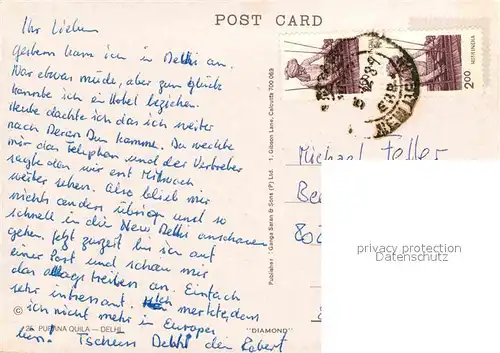 POST CARD
Ihr Lieben
gestern kam ich in Delhi an.
War etwas müde, aber zum Glück
konnte ich ein Hotel beziehen.
Heute dachte ich das ich weiter
nach Deran Dun komme. Da weckte
mir das Telephon und der Vertreter
sagte das wir erst Mittwoch
weiter sehen. Also blieb mir
nichts anders übrig und so
schnell in die New Delhi anschauen
gehen. Jetzt zurzeit bin ich auf
einer Post und schau mir
das alltags treiben an. Einfach
sehr intressant. Ich merkte, dass
ich nicht mehr in Europa
bin! Tschüss Delhi dein Robert
© 26. PURANA QUILA — DELHI
"DIAMOND"
Publisher : Ganga Saran & Sons (P) Ltd. 1, Gibson Lane, Calcutta 700 069
2.00 भारत INDIA
Michael Feller
privacy protection
Datenschutz